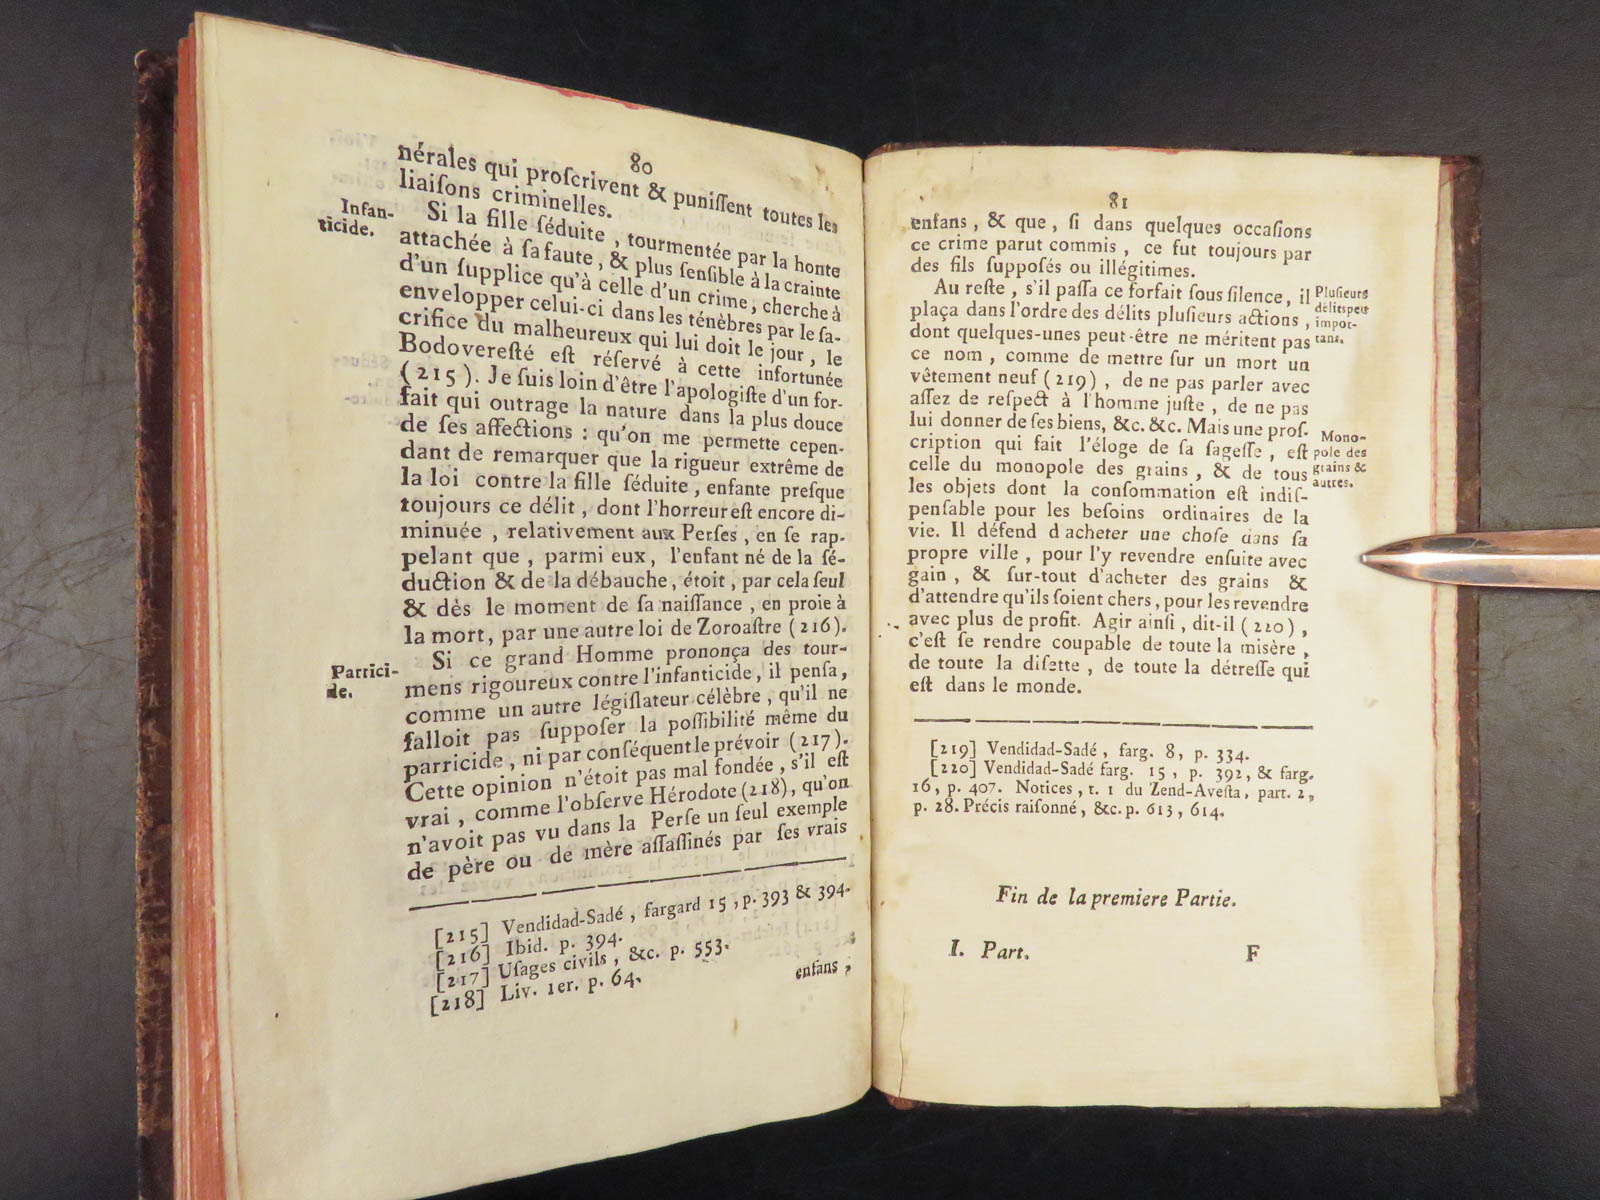 80
nérales qui proſcrivent & puniſſent toutes les
liaiſons criminelles.
Infan-
ticide.
Si la fille ſéduite, tourmentée par la honte
attachée à ſa faute, & plus ſenſible à la crainte
d'un ſupplice qu'à celle d'un crime, cherche à
envelopper celui-ci dans les ténèbres par le ſa-
crifice du malheureux qui lui doit le jour, le
Bodovereſté eſt réſervé à cette infortunée
(215). Je ſuis loin d'être l'apologiſte d'un for-
fait qui outrage la nature dans la plus douce
de ſes affections : qu'on me permette cepen-
dant de remarquer que la rigueur extrême de
la loi contre la fille ſéduite, enfante preſque
toujours ce délit, dont l'horreur eſt encore di-
minuée, relativement aux Perſes, en ſe rap-
pelant que, parmi eux, l'enfant né de la ſé-
duction & de la débauche, étoit, par cela ſeul
& dès le moment de ſa naiſſance, en proie à
la mort, par une autre loi de Zoroaſtre (216).
Parrici-
de.
Si ce grand Homme prononça des tour-
mens rigoureux contre l'infanticide, il penſa,
comme un autre légiſlateur célèbre, qu'il ne
falloit pas ſuppoſer la poſſibilité même du
parricide, ni par conſéquent le prévoir (217).
Cette opinion n'étoit pas mal fondée, s'il eſt
vrai, comme l'obſerve Hérodote (218), qu'on
n'avoit pas vu dans la Perſe un ſeul exemple
de père ou de mère aſſaſſinés par ſes vrais
[215] Vendidad-Sadé, fargard 15, p. 393 & 394.
[216] Ibid. p. 394.
[217] Uſages civils, &c. p. 553.
[218] Liv. 1er. p. 64.
enfans,
81
enfans, & que, ſi dans quelques occaſions
ce crime parut commis, ce fut toujours par
des fils ſuppoſés ou illégitimes.
Au reſte, s'il paſſa ce forfait ſous ſilence, il
plaça dans l'ordre des délits pluſieurs actions,
dont quelques-unes peut-être ne méritent pas
ce nom, comme de mettre ſur un mort un
vêtement neuf (219), de ne pas parler avec
aſſez de reſpect à l'homme juſte, de ne pas
lui donner de ſes biens, &c. &c. Mais une proſ-
cription qui fait l'éloge de ſa ſageſſe, eſt
celle du monopole des grains, & de tous
les objets dont la conſommation eſt indiſ-
penſable pour les beſoins ordinaires de la
vie. Il défend d'acheter une choſe dans ſa
propre ville, pour l'y revendre enſuite avec
gain, & ſur-tout d'acheter des grains &
d'attendre qu'ils ſoient chers, pour les revendre
avec plus de profit. Agir ainſi, dit-il (220),
c'eſt ſe rendre coupable de toute la miſère,
de toute la diſette, de toute la détreſſe qui
eſt dans le monde.
Pluſieurs
délits peu
impor-
tans.
Mono-
pole des
grains &
autres.
[219] Vendidad-Sadé, farg. 8, p. 334.
[220] Vendidad-Sadé farg. 15, p. 392, & farg.
16, p. 407. Notices, t. 1 du Zend-Aveſta, part. 2,
p. 28. Précis raiſonné, &c. p. 613, 614.
Fin de la premiere Partie.
I. Part. F